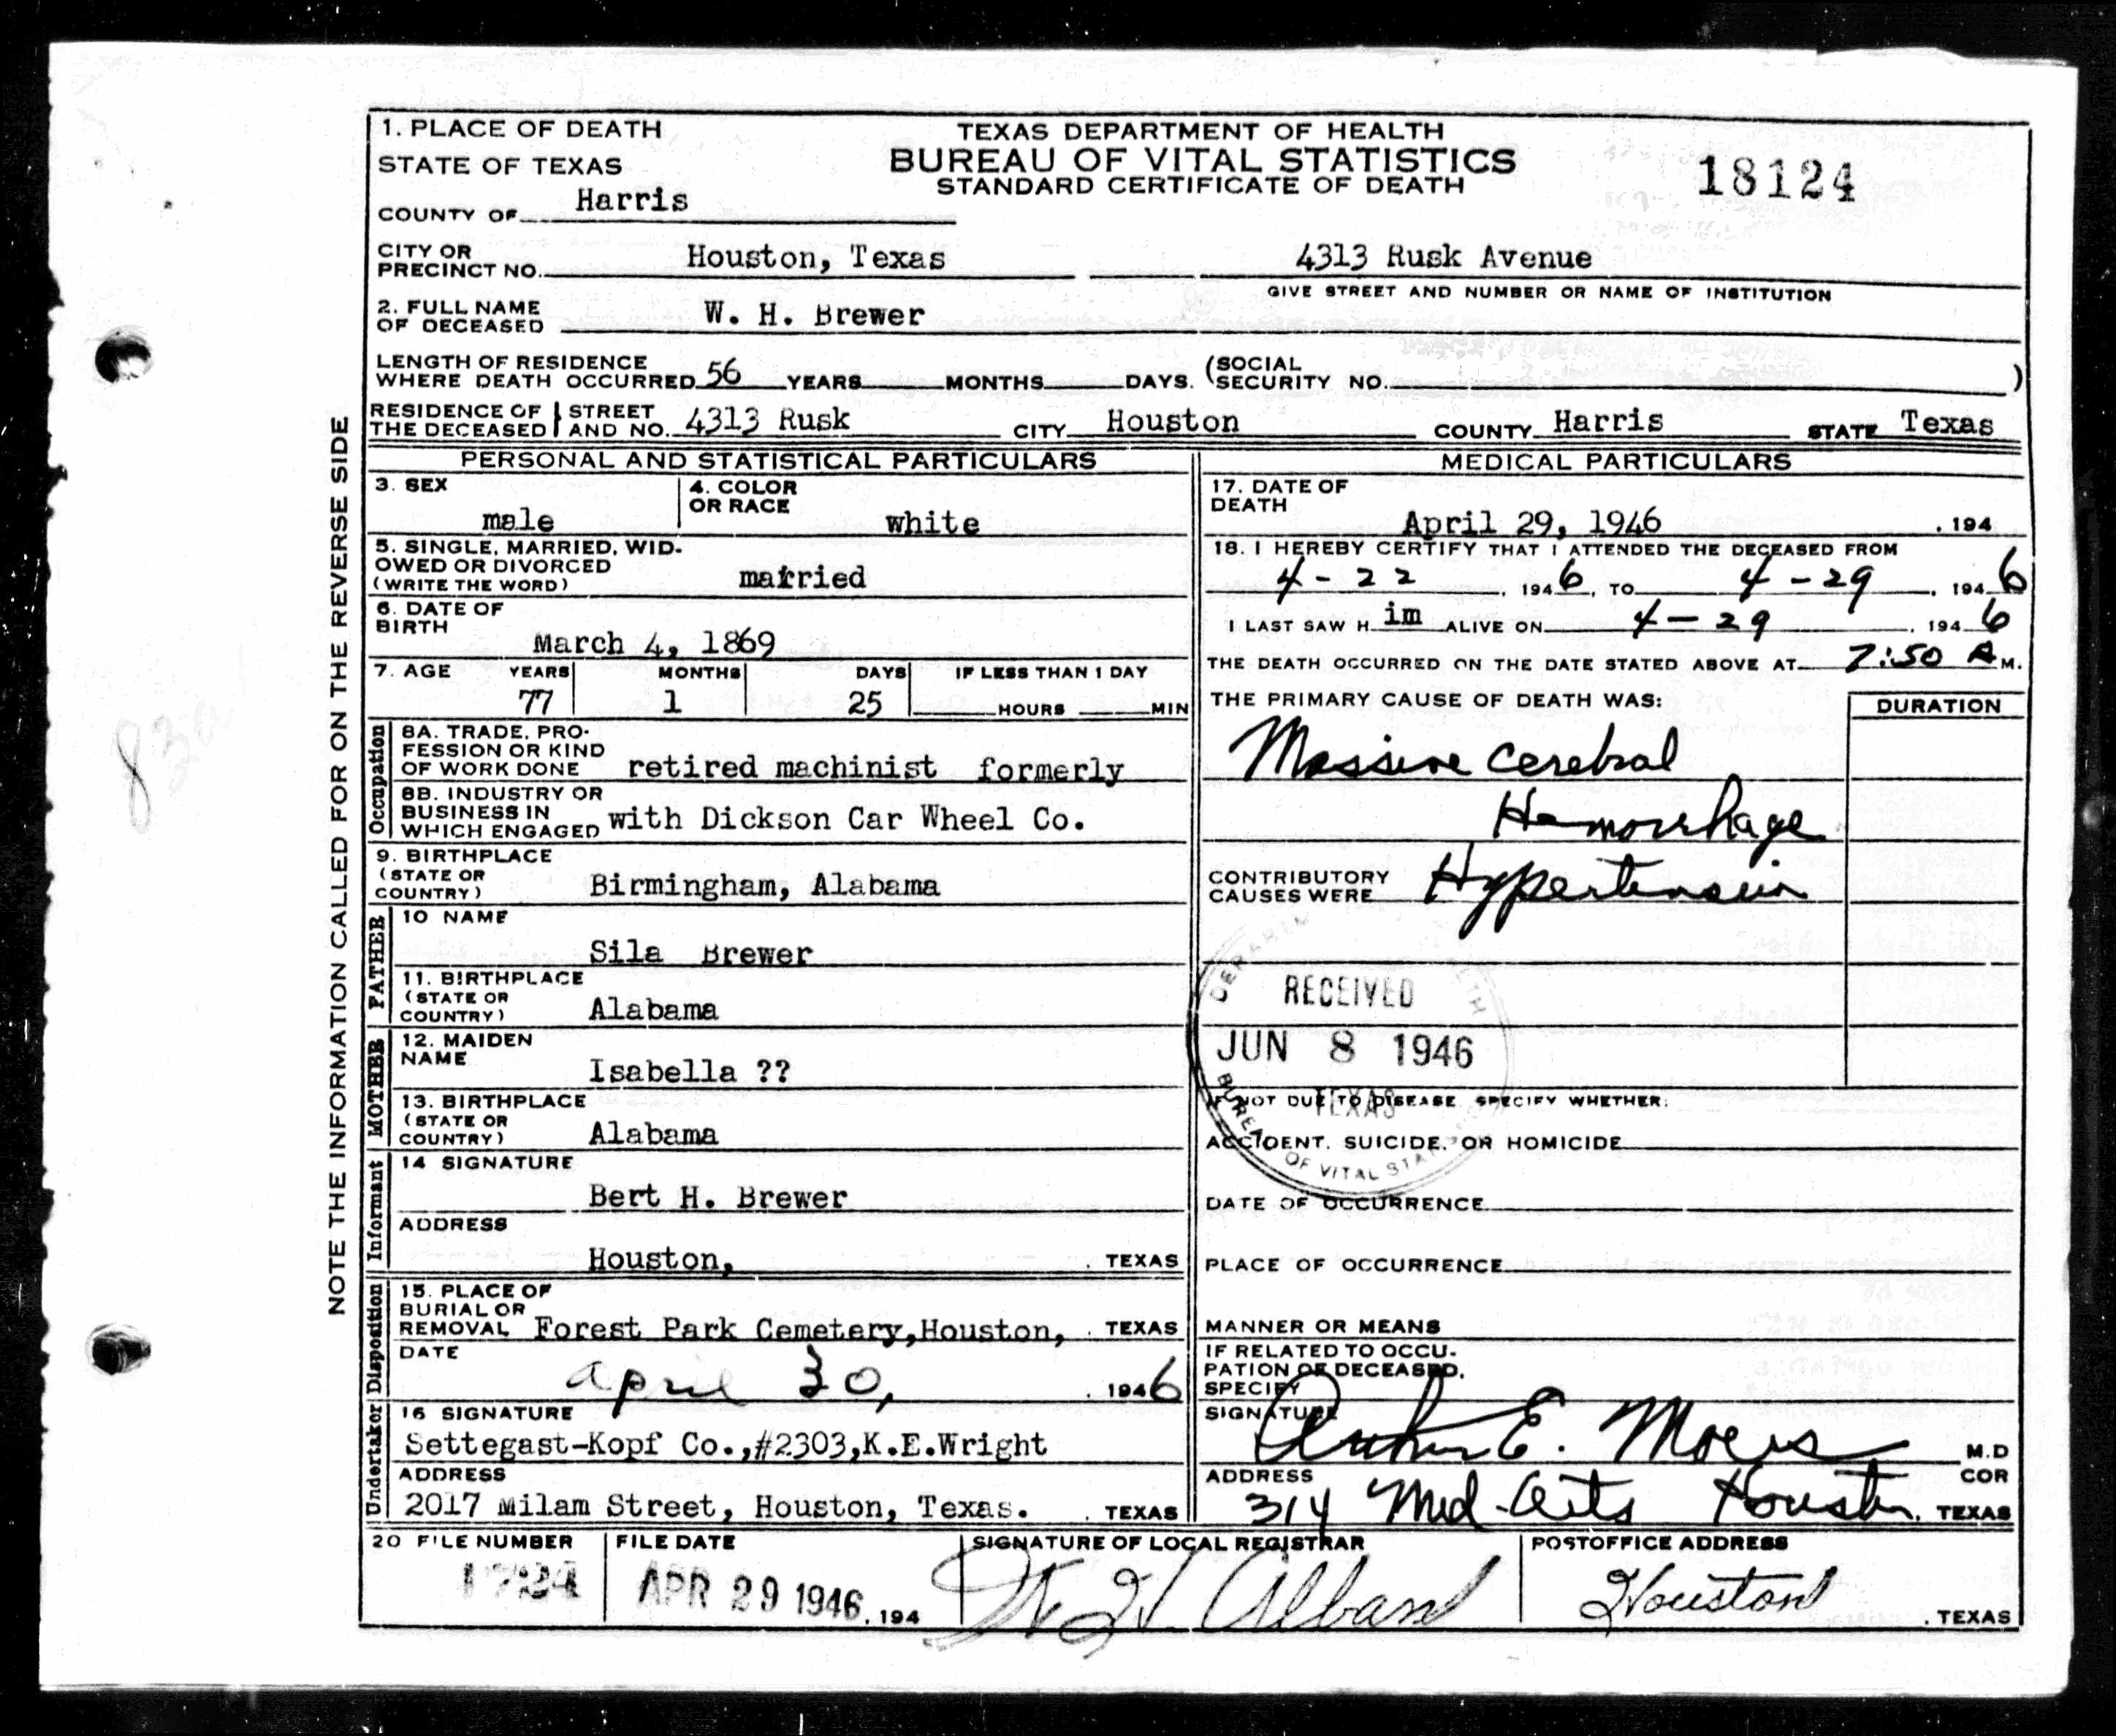 1. PLACE OF DEATH
STATE OF TEXAS
COUNTY OF Harris
TEXAS DEPARTMENT OF HEALTH
BUREAU OF VITAL STATISTICS
STANDARD CERTIFICATE OF DEATH
18124
CITY OR
PRECINCT NO. Houston, Texas 4313 Rusk Avenue
GIVE STREET AND NUMBER OR NAME OF INSTITUTION
2. FULL NAME
OF DECEASED W. H. Brewer
LENGTH OF RESIDENCE
WHERE DEATH OCCURRED 56 YEARS MONTHS DAYS. (SOCIAL
SECURITY NO. )
RESIDENCE OF
THE DECEASED
STREET
AND NO. 4313 Rusk CITY Houston COUNTY Harris STATE Texas
PERSONAL AND STATISTICAL PARTICULARS
3. SEX
male
4. COLOR
OR RACE
white
5. SINGLE, MARRIED, WID-
OWED OR DIVORCED
(WRITE THE WORD) married
6. DATE OF
BIRTH
March 4, 1869
7. AGE YEARS MONTHS DAYS IF LESS THAN 1 DAY
77 1 25 HOURS MIN
Occupation
8A. TRADE, PRO-
FESSION OR KIND
OF WORK DONE retired machinist formerly
8B. INDUSTRY OR
BUSINESS IN
WHICH ENGAGED with Dickson Car Wheel Co.
9. BIRTHPLACE
(STATE OR
COUNTRY) Birmingham, Alabama
FATHER
10 NAME
Sila Brewer
11. BIRTHPLACE
(STATE OR
COUNTRY) Alabama
MOTHER
12. MAIDEN
NAME
Isabella ??
13. BIRTHPLACE
(STATE OR
COUNTRY) Alabama
Informant
14 SIGNATURE
Bert H. Brewer
ADDRESS
Houston, TEXAS
Disposition
15. PLACE OF
BURIAL OR
REMOVAL Forest Park Cemetery,Houston, TEXAS
DATE
April 30, 1946
Undertaker
16 SIGNATURE
Settegast-Kopf Co.,#2303,K.E.Wright
ADDRESS
2017 Milam Street, Houston, Texas. TEXAS
MEDICAL PARTICULARS
17. DATE OF
DEATH
April 29, 1946 , 194
18. I HEREBY CERTIFY THAT I ATTENDED THE DECEASED FROM
4-22, 1946, TO 4-29, 1946
I LAST SAW H im ALIVE ON 4-29, 1946
THE DEATH OCCURRED ON THE DATE STATED ABOVE AT 7:50 A M.
THE PRIMARY CAUSE OF DEATH WAS:
DURATION
Massive Cerebral
Hemorrhage
CONTRIBUTORY
CAUSES WERE Hypertension
RECEIVED
JUN 8 1946
TEXAS
BUREAU OF VITAL
IF NOT DUE TO DISEASE SPECIFY WHETHER:
ACCIDENT, SUICIDE, OR HOMICIDE
DATE OF OCCURRENCE
PLACE OF OCCURRENCE
MANNER OR MEANS
IF RELATED TO OCCU-
PATION OF DECEASED,
SPECIFY
SIGNATURE Arthur E. M.D
ADDRESS COR
314 Med-Arts Houston, TEXAS
20 FILE NUMBER
FILE DATE
APR 29 1946, 194
SIGNATURE OF LOCAL REGISTRAR
Alban
POSTOFFICE ADDRESS
Houston
, TEXAS
NOTE THE INFORMATION CALLED FOR ON THE REVERSE SIDE